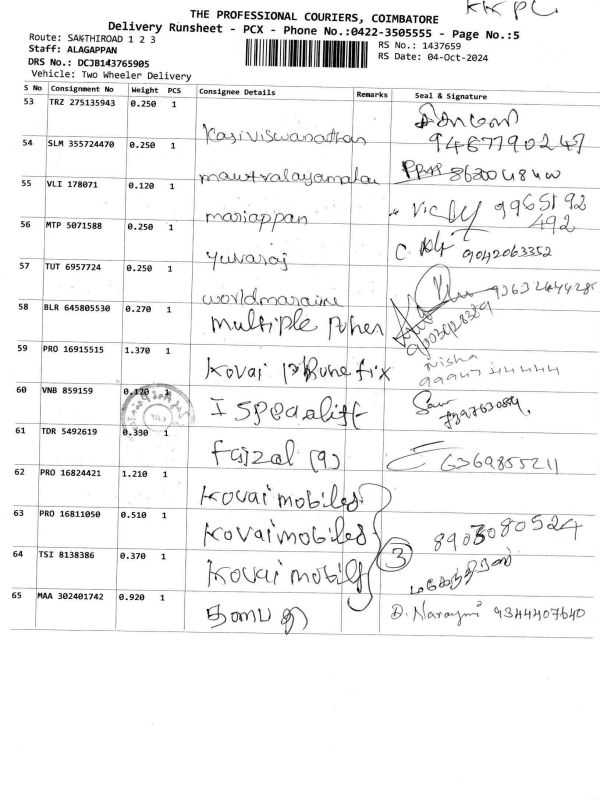 KKPC
THE PROFESSIONAL COURIERS, COIMBATORE
Delivery Runsheet - PCX - Phone No.:0422-3505555 - Page No.:5
Route: SAKTHIROAD 1 2 3
RS No.: 1437659
Staff: ALAGAPPAN
RS Date: 04-Oct-2024
DRS No.: DCJB143765905
Vehicle: Two Wheeler Delivery
S No Consignment No Weight PCS Consignee Details Remarks Seal & Signature
53 TRZ 275135943 0.250 1 Kasiviswanathan 9487790247
54 SLM 355724470 0.250 1
55 VLI 178071 0.120 1 mariappan Vicky 9965192
492
56 MTP 5071588 0.250 1 Yuvaraj 9042063352
57 TUT 6957724 0.250 1
58 BLR 645805530 0.270 1 multiple
59 PRO 16915515 1.370 1 Kovai Nisha
99947 44444
60 VNB 859159 0.120 1 I
61 TDR 5492619 0.330 1 Faizal (9) 6369855211
62 PRO 16824421 1.210 1 Kovai mobiles
63 PRO 16811050 0.510 1 Kovai mobiles 8903080524
64 TSI 8138386 0.370 1 Kovai mobils 3 மகேந்திரன்
65 MAA 302401742 0.920 1 தளபதி D. Narayni 9344407640